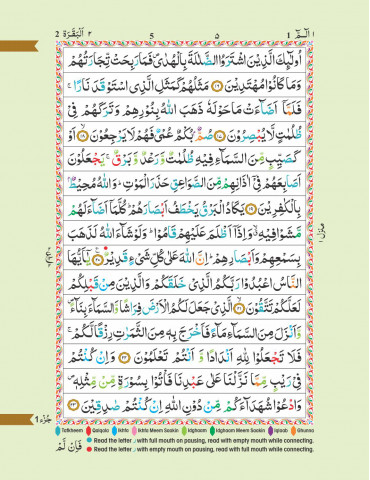 الٓمّٓ ١ 1 ٥ 5 اَلْبَقَرَة ٢ 2
اُولٰٓئِكَ الَّذِيْنَ اشْتَرَوُا الضَّلٰلَةَ بِالْهُدٰى۪ فَمَا رَبِحَتْ تِّجَارَتُهُمْ
وَمَا كَانُوْا مُهْتَدِيْنَ ﴿١٦﴾ مَثَلُهُمْ كَمَثَلِ الَّذِى اسْتَوْقَدَ نَارًا ۚ
فَلَمَّآ اَضَآءَتْ مَا حَوْلَهٗ ذَهَبَ اللّٰهُ بِنُوْرِهِمْ وَتَرَكَهُمْ فِىْ
ظُلُمٰتٍ لَّا يُبْصِرُوْنَ ﴿١٧﴾ صُمٌّۢ بُكْمٌ عُمْىٌ فَهُمْ لَا يَرْجِعُوْنَ ﴿١٨﴾ اَوْ
كَصَيِّبٍ مِّنَ السَّمَآءِ فِيْهِ ظُلُمٰتٌ وَّرَعْدٌ وَّبَرْقٌ ۚ يَجْعَلُوْنَ
اَصَابِعَهُمْ فِىْٓ اٰذَانِهِمْ مِّنَ الصَّوَاعِقِ حَذَرَ الْمَوْتِ ؕ وَاللّٰهُ مُحِيْطٌۢ
بِالْكٰفِرِيْنَ ﴿١٩﴾ يَكَادُ الْبَرْقُ يَخْطَفُ اَبْصَارَهُمْ ؕ كُلَّمَآ اَضَآءَ لَهُمْ
مَّشَوْا فِيْهِ ۙ وَاِذَآ اَظْلَمَ عَلَيْهِمْ قَامُوْا ؕ وَلَوْ شَآءَ اللّٰهُ لَذَهَبَ
بِسَمْعِهِمْ وَاَبْصَارِهِمْ ؕ اِنَّ اللّٰهَ عَلٰى كُلِّ شَىْءٍ قَدِيْرٌ ﴿٢٠﴾ يٰٓاَيُّهَا
النَّاسُ اعْبُدُوْا رَبَّكُمُ الَّذِىْ خَلَقَكُمْ وَالَّذِيْنَ مِنْ قَبْلِكُمْ
لَعَلَّكُمْ تَتَّقُوْنَ ﴿٢١﴾ الَّذِىْ جَعَلَ لَكُمُ الْاَرْضَ فِرَاشًا وَّالسَّمَآءَ بِنَآءً ۪
وَّاَنْزَلَ مِنَ السَّمَآءِ مَآءً فَاَخْرَجَ بِهٖ مِنَ الثَّمَرٰتِ رِزْقًا لَّكُمْ ۚ
فَلَا تَجْعَلُوْا لِلّٰهِ اَنْدَادًا وَّاَنْتُمْ تَعْلَمُوْنَ ﴿٢٢﴾ وَاِنْ كُنْتُمْ
فِىْ رَيْبٍ مِّمَّا نَزَّلْنَا عَلٰى عَبْدِنَا فَاْتُوْا بِسُوْرَةٍ مِّنْ مِّثْلِهٖ ۪
وَادْعُوْا شُهَدَآءَكُمْ مِّنْ دُوْنِ اللّٰهِ اِنْ كُنْتُمْ صٰدِقِيْنَ ﴿٢٣﴾
منزل ١
جُزْء 1
Tafkheem Qalqala Ikhfa Ikhfa Meem Saakin Idghaam Idghaam Meem Saakin Iqlaab Ghunna
Read the letter ر with full mouth on pausing, read with empty mouth while connecting.
Read the letter ر with empty mouth on pausing, read with full mouth while connecting.
فَاِنْ لَّمْ